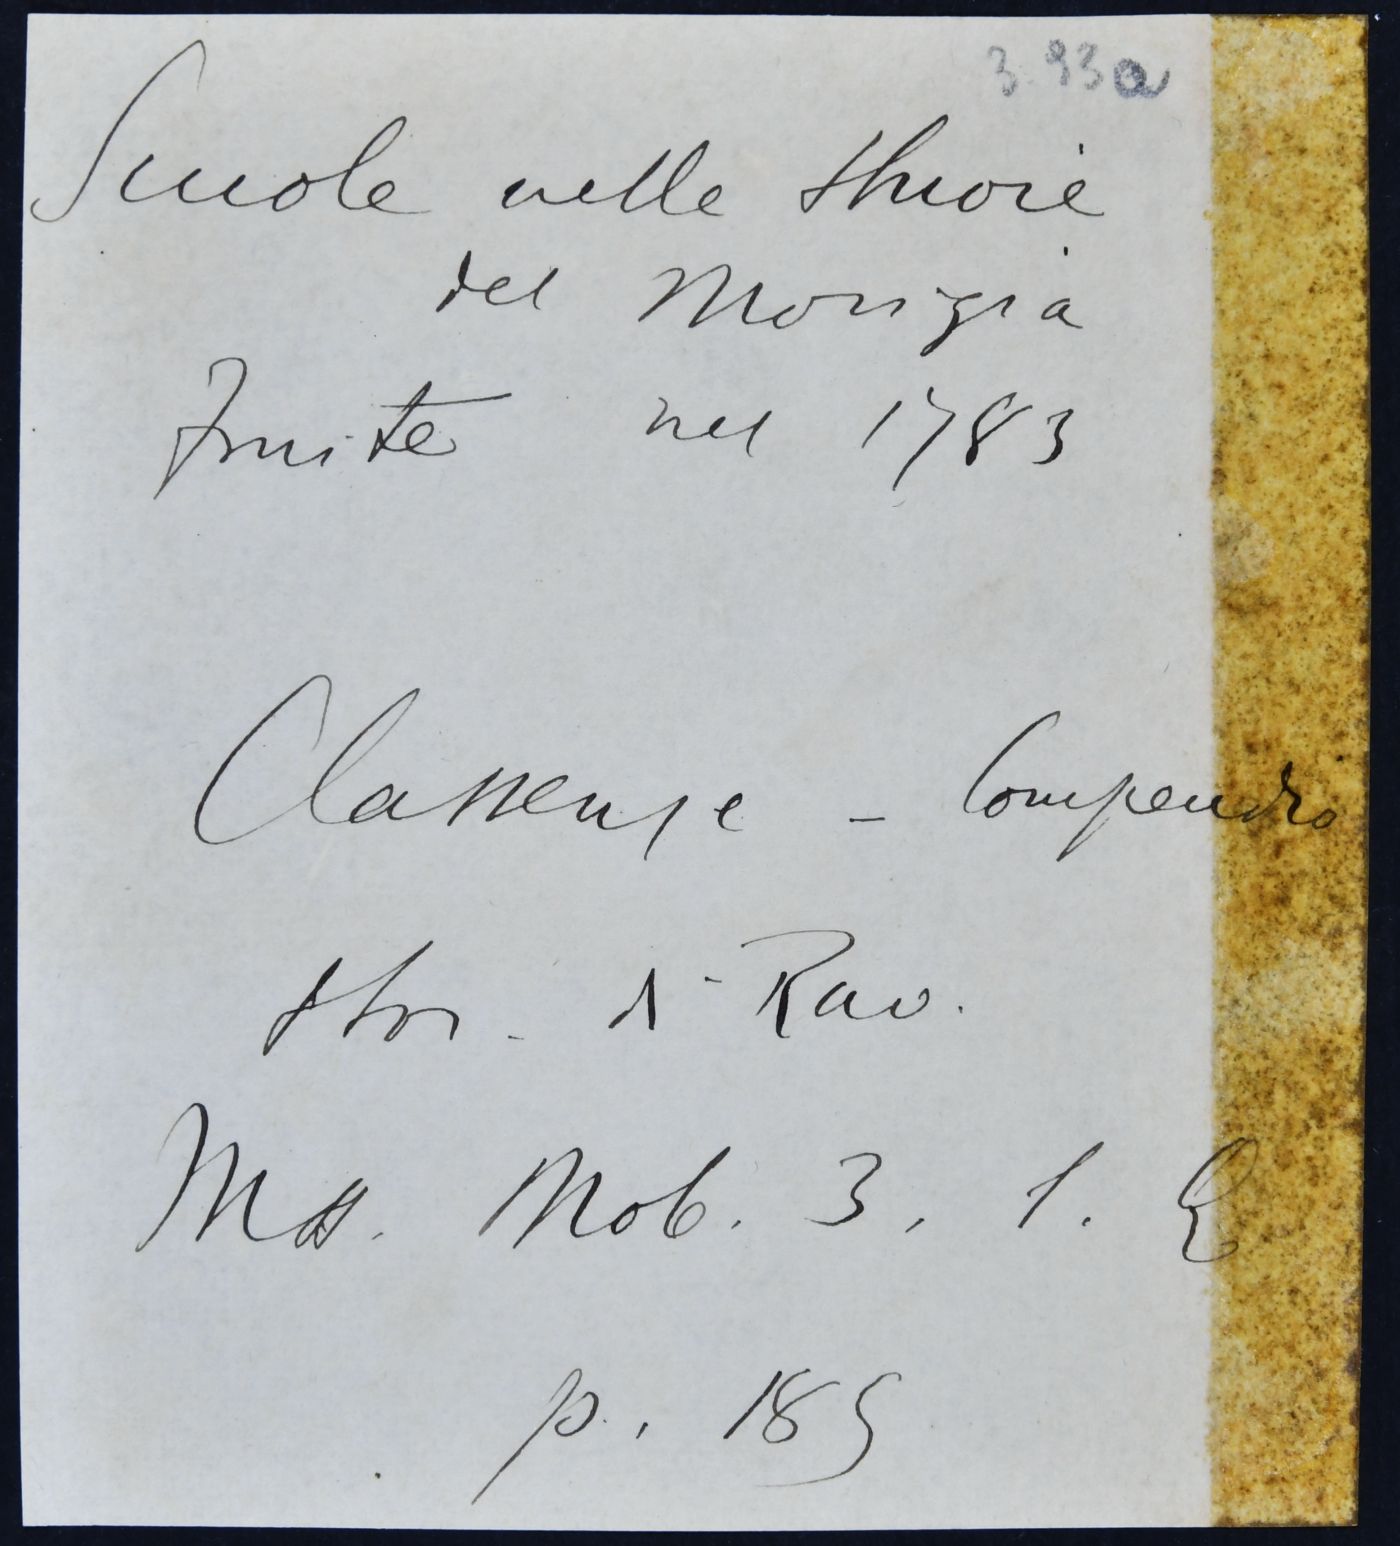 3.93a
Scuole nelle
del Morigia
finite nel 1783
Classense - Compendio
stor. di Rav.
Mss. Mob. 3. 1.
p. 185